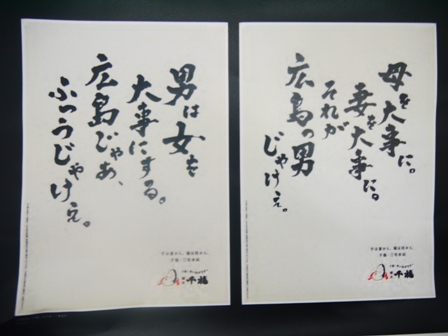 男は女を
大事にする。
広島じゃあ、
ふつうじゃけえ。
千福
母を大事に。
妻を大事に。
それが
広島の男
じゃけえ。
千福